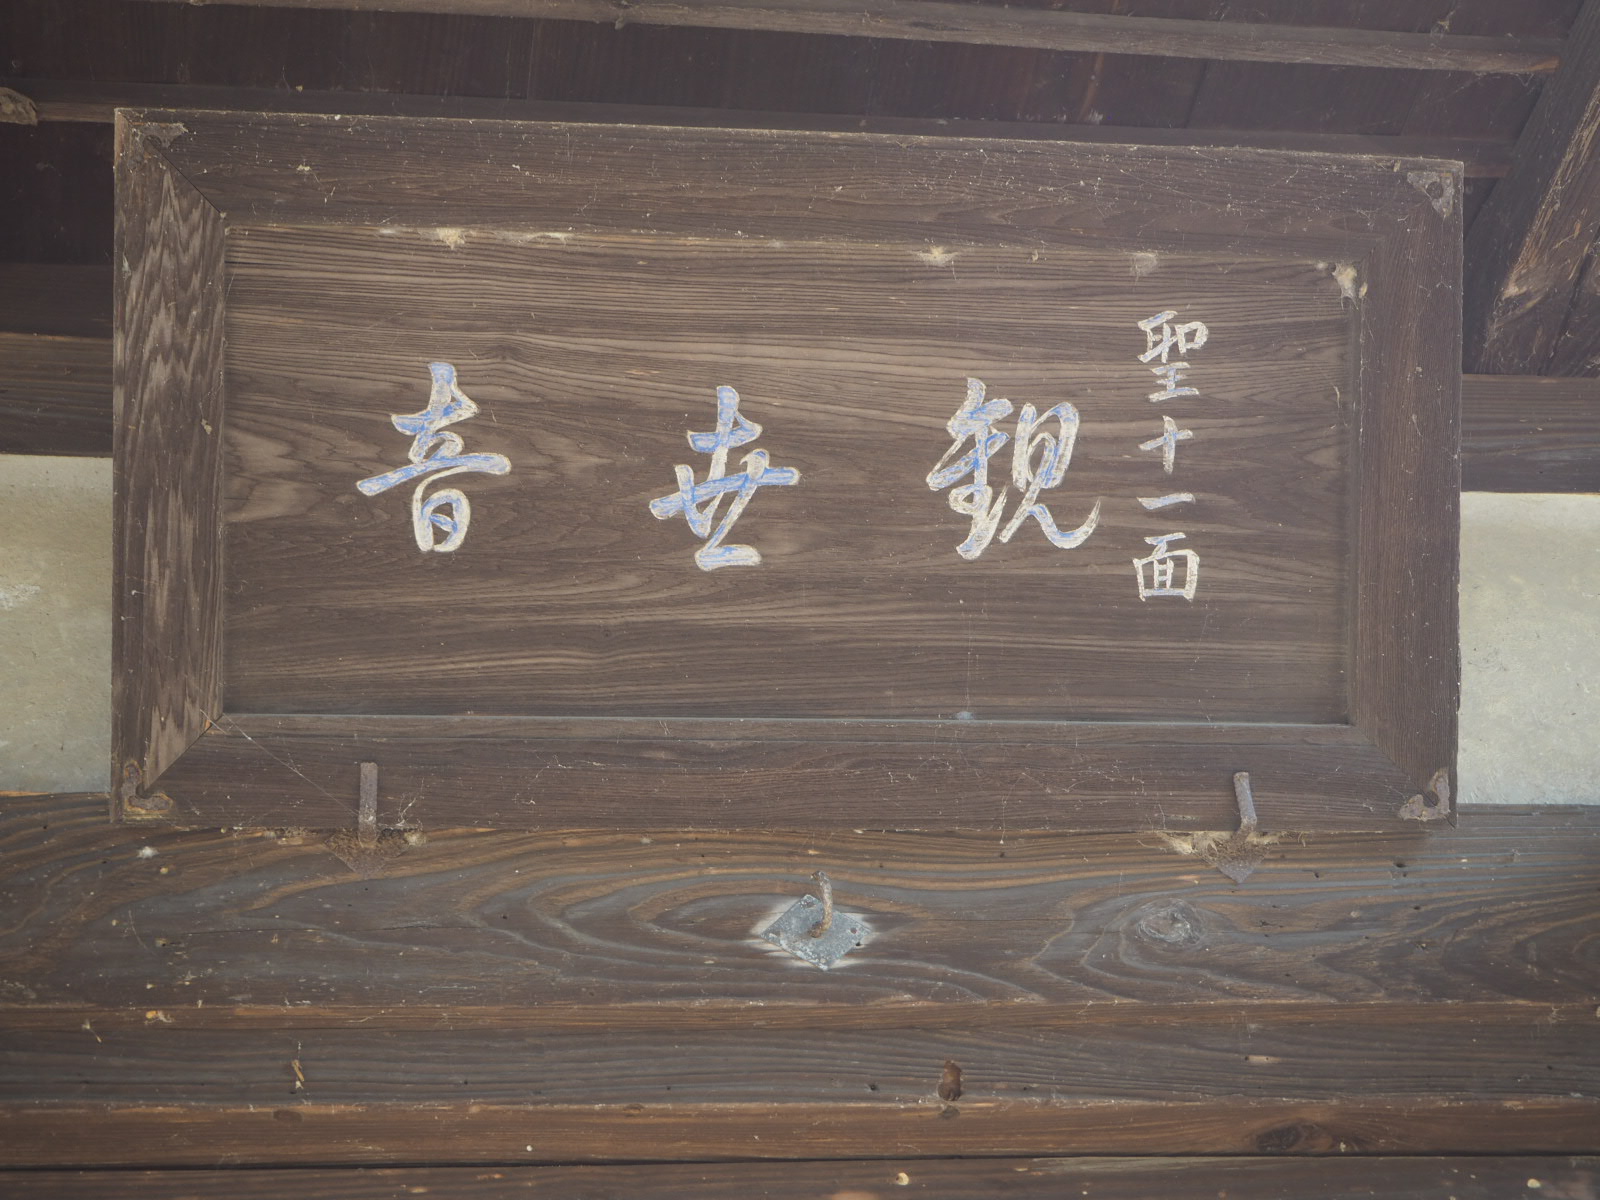 聖十一面
観世音